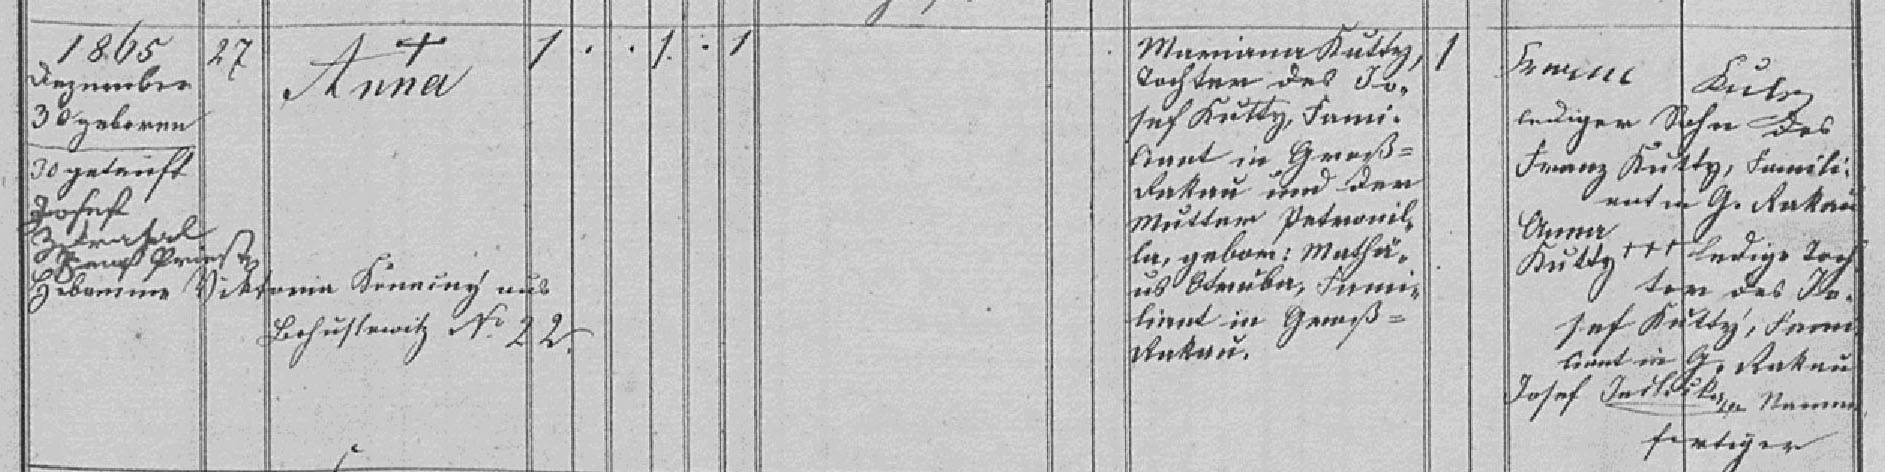 1865
Dezember
30 geboren
30 getauft
Josef
Priester
Hebamme Viktoria Konečný aus
Bohuslawitz No. 22.
27
†
Anna
1 . . 1. . 1
Marianna Kutty,
Tochter des Jo-
sef Kutty, Fami-
liant in Groß=
Rakau und der
Mutter Petronil-
la, gebor: Mathä-
us Struba, Fami-
liant in Groß=
Rakau.
1
Franz Kuty
lediger Sohn des
Franz Kutty, Famili-
ant in G. Rakau
Anna
Kutty +++ ledige Toch
ter des Jo-
sef Kutty, Fami
liant in G. Rakau
Josef Namens
fertiger